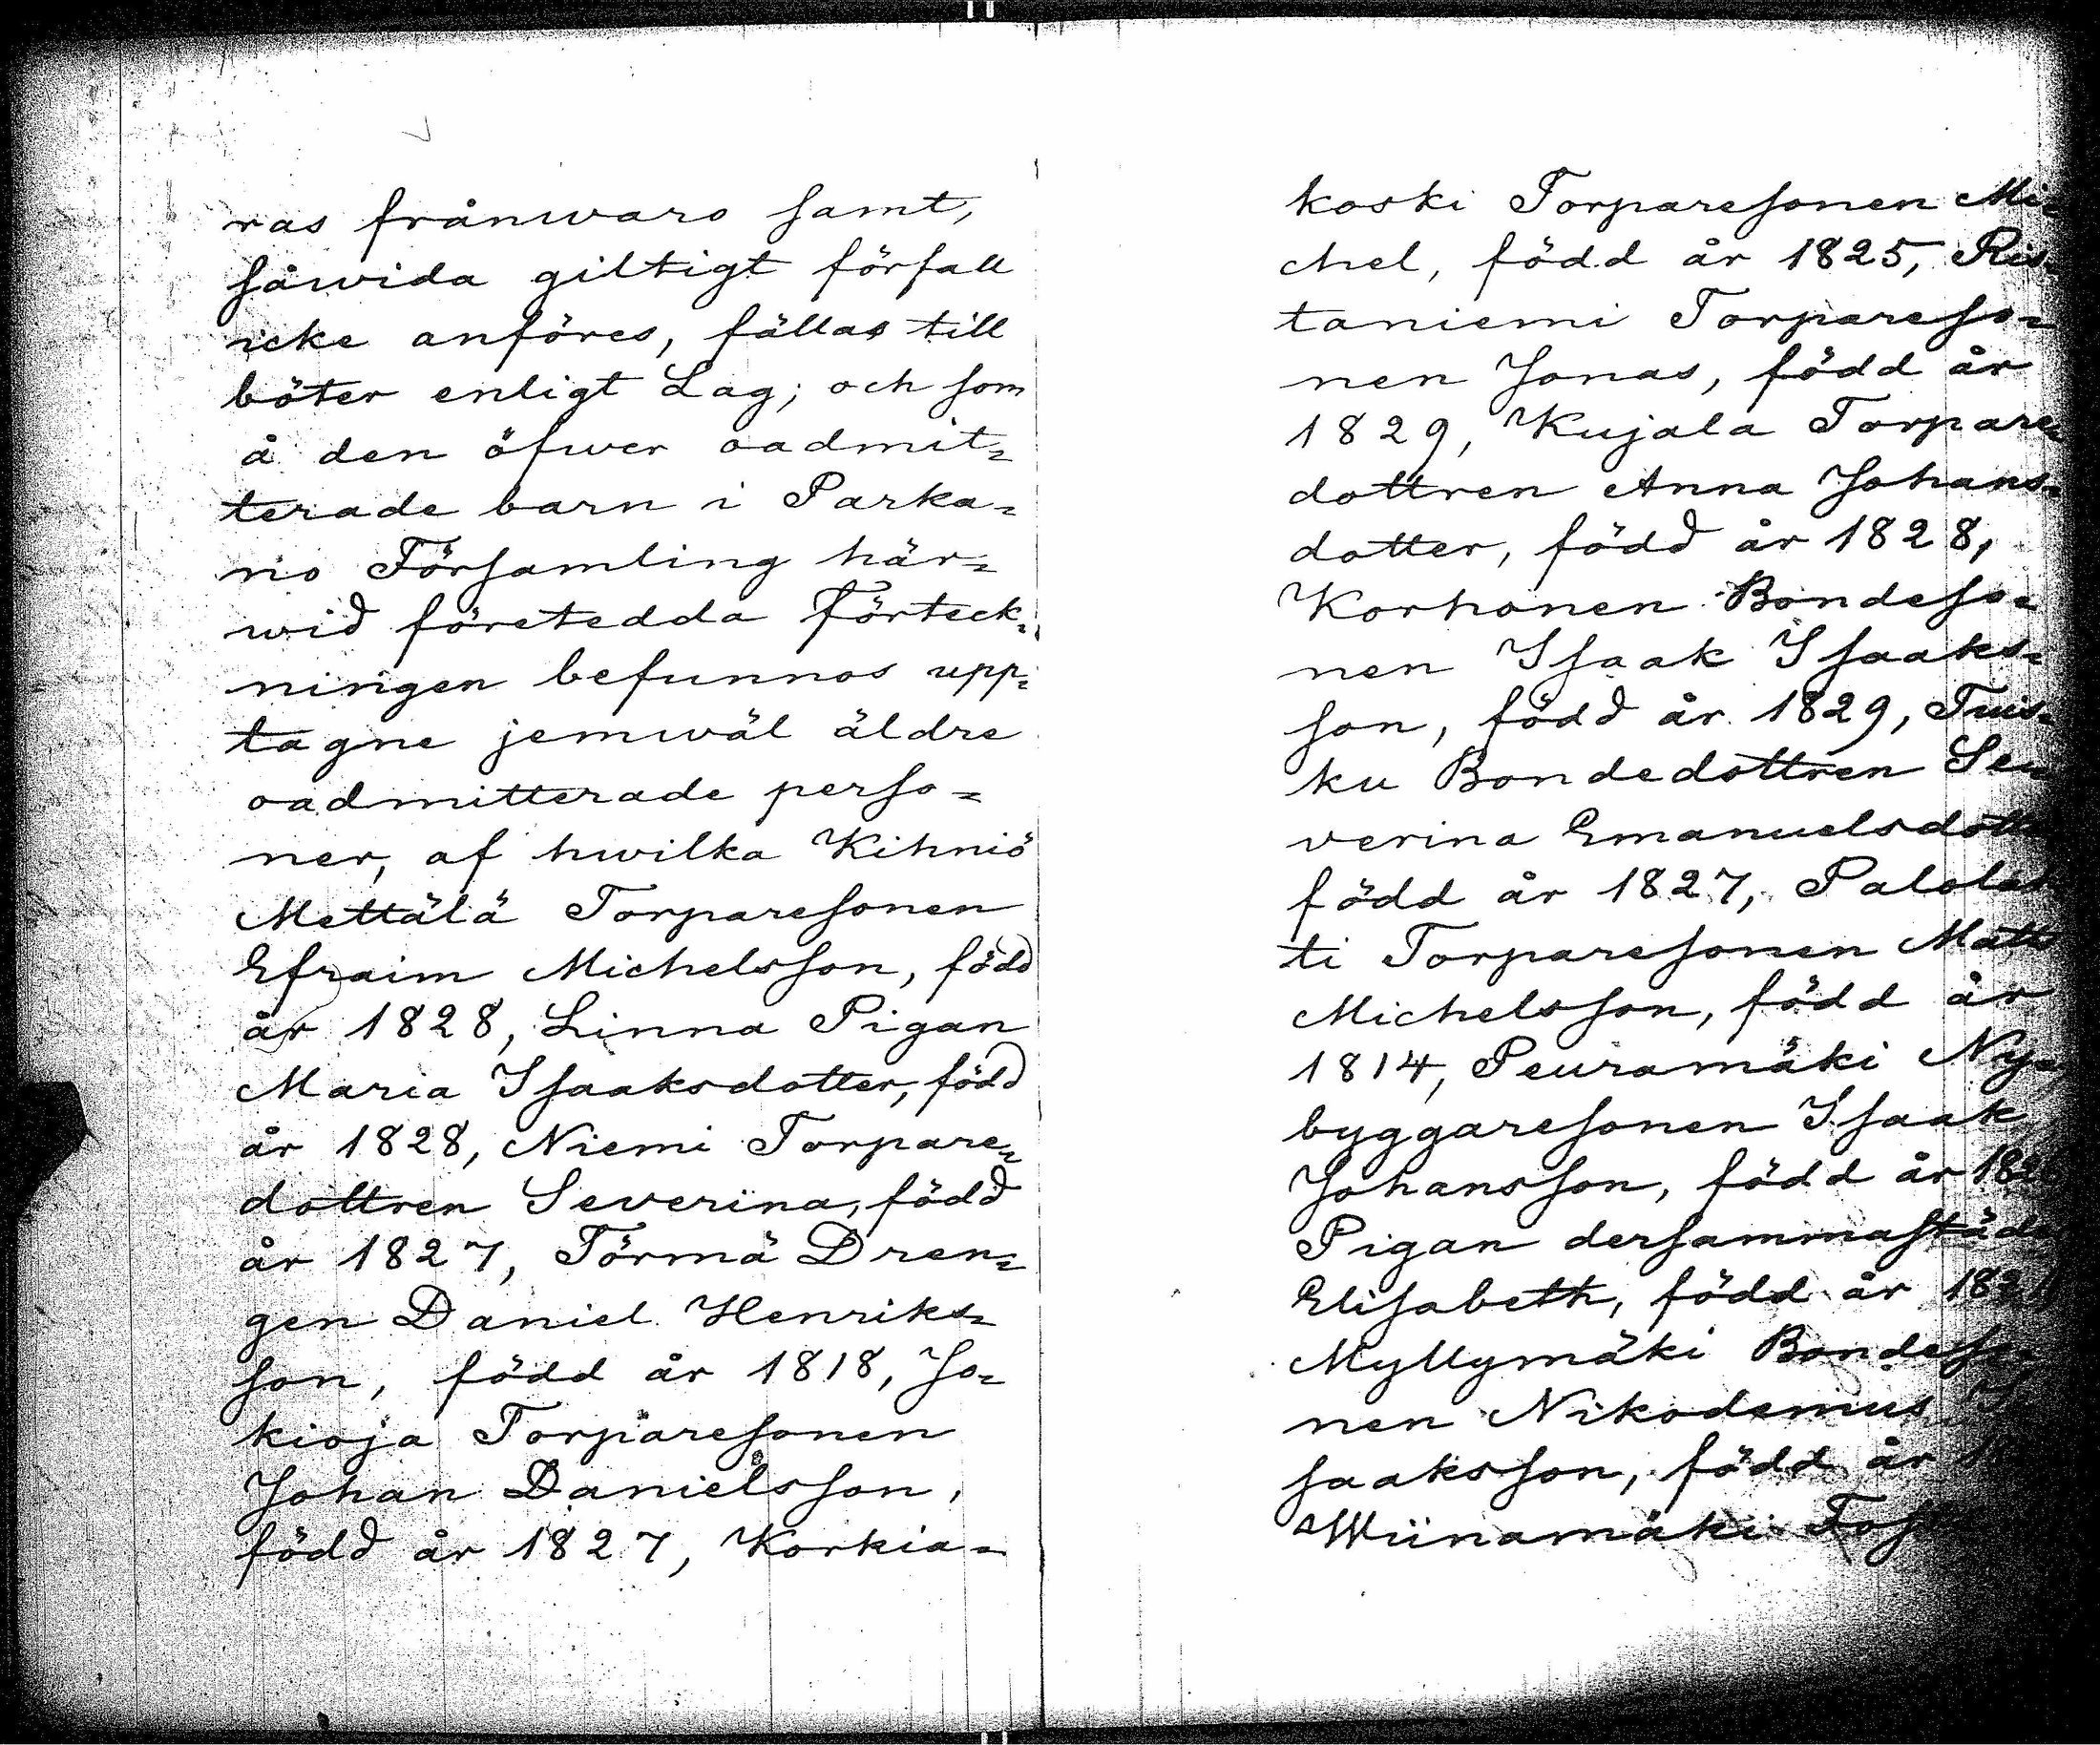 ras frånwaro samt,
såwida giltigt förfall
icke anföres, fällas till
böter enligt Lag; och som
å den öfwer oadmit=
terade barn i Parka=
no Församling här=
wid företedda förteck=
ningen befunnos upp=
tagne jemwäl äldre
oadmitterade perso=
ner, af hwilka Kihniö
Mettälä Torparesonen
Efraim Michelsson, född
år 1828, Linna Pigan
Maria Isaaksdotter, född
år 1828, Niemi Torpare=
dottren Severina, född
år 1827, Törmä Dren=
gen Daniel Henriks=
son, född år 1818, Jo=
kioja Torparesonen
Johan Danielsson,
född år 1827, Korkia=
koski Torparesonen Mi=
chel, född år 1825, Ris=
taniemi Torpareso=
nen Jonas, född år
1829, Kujala Torpare=
dottren Anna Johans=
dotter, född år 1828,
Korhonen Bondeso=
nen Isaak Isaaks=
son, född år 1829, Tuis=
ku Bondedottren Se=
verina Emanuelsdotte
född år 1827, Palola
ti Torparesonen Matts
Michelsson, född år
1814, Peuramäki Ny=
byggaresonen Isaak
Johansson, född år
Pigan dersammastäde
Elisabeth, född år
Myllymäki Bondeso=
nen Nikodemus I
saaksson, född år
Wiinamäki